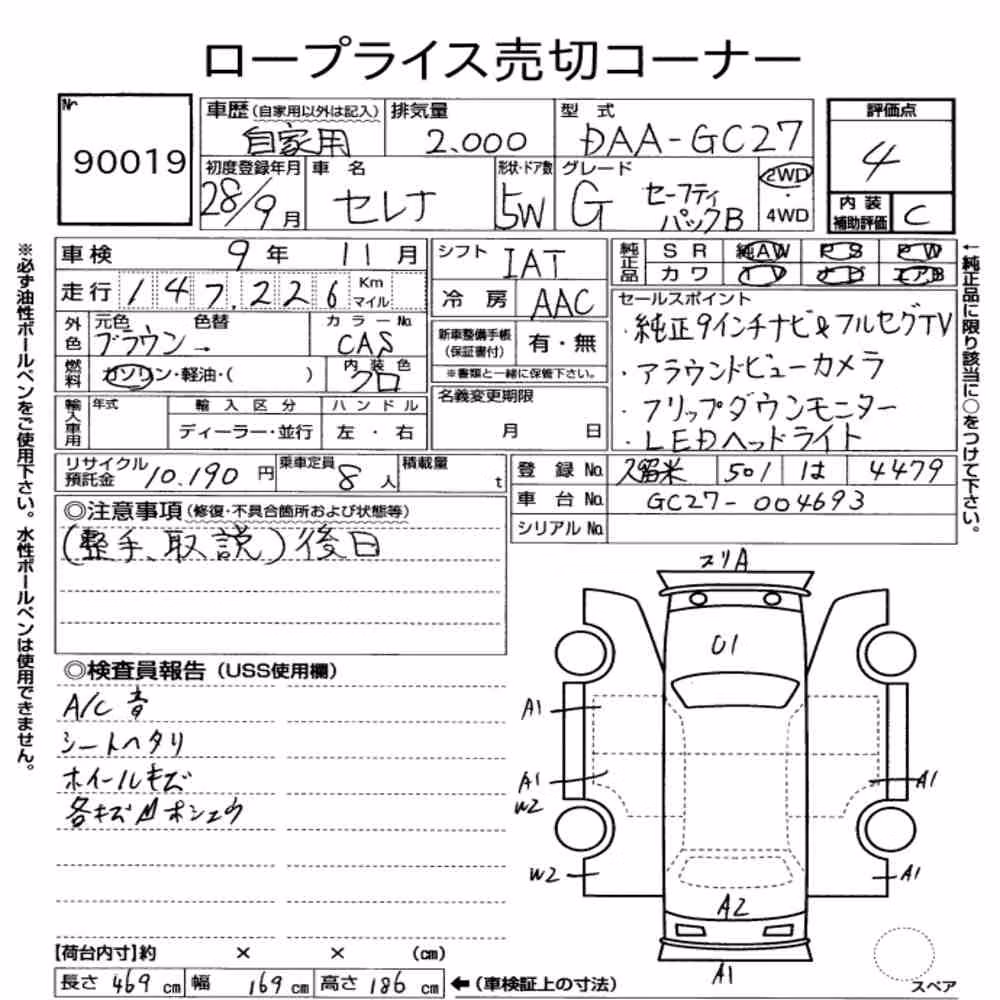 ロープライス売切コーナー
№
90019
車歴(自家用以外は記入) 排気量 型式
自家用 2.000 DAA-GC27
初度登録年月 車名 形状・ドア数 グレード
28/9月 セレナ 5W G セーフティパックB
2WD
・
4WD
評価点
4
内装補助評価 C
車検 9年 11月
走行 147,226 Km マイル
外色 元色 色替 カラーNo.
ブラウン→ CAS
燃料 ガソリン・軽油・( ) 内装色 クロ
輸入車用 年式 輸入区分 ハンドル
ディーラー・並行 左・右
シフト IAT
冷房 AAC
新車整備手帳(保証書付) 有・無
※書類と一緒に保管下さい。
名義変更期限
月 日
純正品 SR 純AW PS PW
カワ TV ナビ エアB
セールスポイント
・純正9インチナビ&フルセグTV
・アラウンドビューカメラ
・フリップダウンモニター
・LEDヘッドライト
リサイクル預託金 10.190円 乗車定員 8人 積載量 t
登録No. 久留米 501 は 4479
車台No. GC27-004693
シリアルNo.
◎注意事項(修復・不具合箇所および状態等)
(整手、取説)後日
◎検査員報告(USS使用欄)
A/C音
シートヘタリ
ホイールキズ
各キズ凹ホシュウ
スリA
O1
A1
A1
W2
A1
W2
A1
A2
A1
スペア
【荷台内寸】約 × × (cm)
長さ 469cm 幅 169cm 高さ 186cm ←(車検証上の寸法)
※必ず油性ボールペンをご使用下さい。水性ボールペンは使用できません。
←純正品に限り該当に○をつけて下さい。